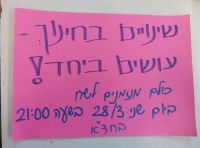 שינויים בחינוך -
עושים ביחד!
כולם מוזמנים לשח
ביום שני 28/3 בשעה 21:00
בחד"א